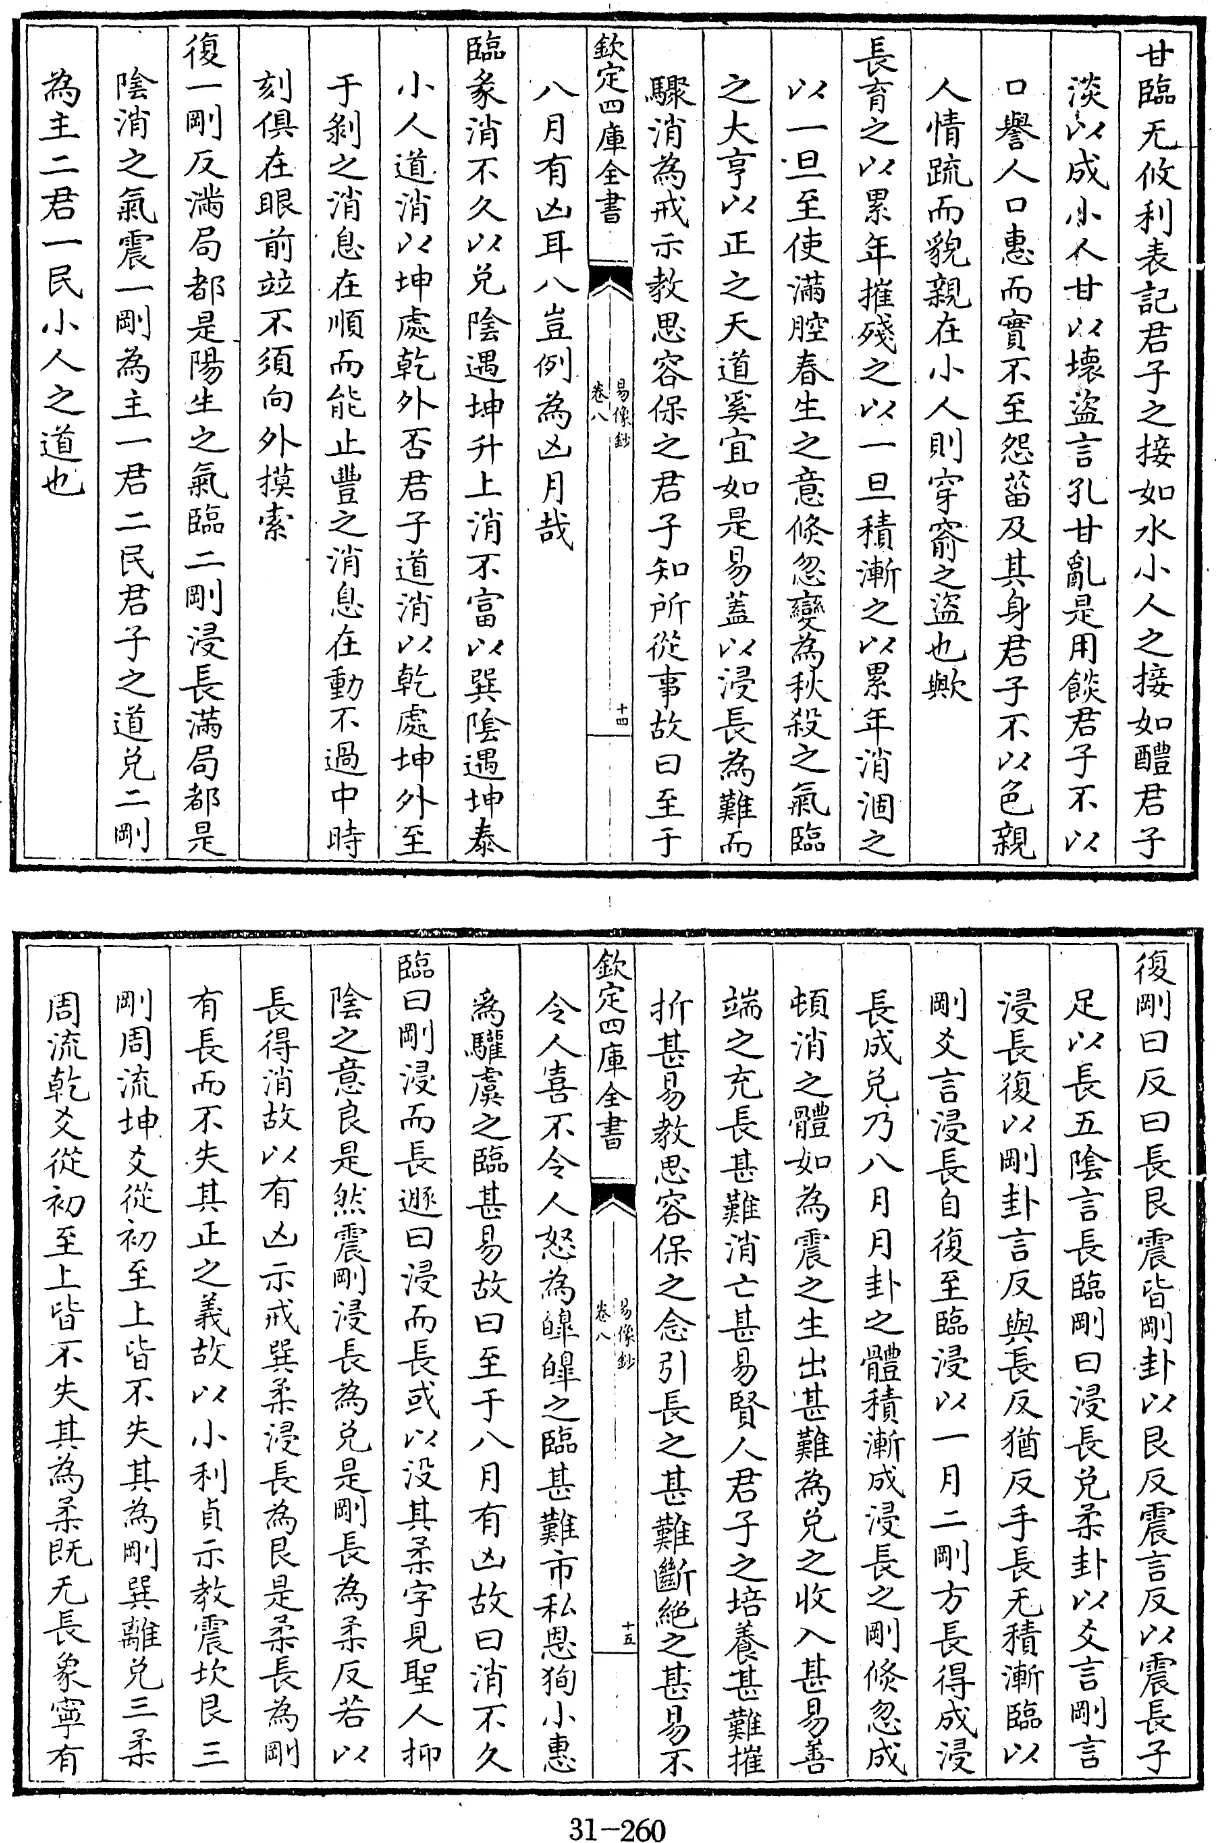 甘臨无攸利表記君子之接如水小人之接如醴君子
淡以成小人甘以壞盜言孔甘亂是用餤君子不以
口譽人口惠而實不至怨菑及其身君子不以色親
人情疏而貌親在小人則穿窬之盜也歟
長育之以累年摧殘之以一旦積漸之以累年消涸之
以一旦至使滿腔春生之意倏忽變為秋殺之氣臨
之大亨以正之天道奚宜如是易蓋以浸長為難而
驟消為戒示教思容保之君子知所從事故曰至于
欽定四庫全書
易像鈔
卷八
十四
八月有凶耳八豈例為凶月哉
臨彖消不久以兌陰遇坤升上消不富以巽陰遇坤泰
小人道消以坤處乾外否君子道消以乾處坤外至
于剝之消息在順而能止豐之消息在動不過中時
刻俱在眼前竝不須向外摸索
復一剛反滿局都是陽生之氣臨二剛浸長滿局都是
陰消之氣震一剛為主一君二民君子之道兌二剛
為主二君一民小人之道也
復剛曰反曰長艮震皆剛卦以艮反震言反以震長子
足以長五陰言長臨剛曰浸長兌柔卦以爻言剛言
浸長復以剛卦言反與長反猶反手長无積漸臨以
剛爻言浸長自復至臨浸以一月二剛方長得成浸
長成兌乃八月月卦之體積漸成浸長之剛倏忽成
頓消之體如為震之生出甚難為兌之收入甚易善
端之充長甚難消亡甚易賢人君子之培養甚難摧
折甚易教思容保之念引長之甚難斷絕之甚易不
欽定四庫全書
易像鈔
卷八
十五
令人喜不令人怒為皡皡之臨甚難市私恩狥小惠
為驩虞之臨甚易故曰至于八月有凶故曰消不久
臨曰剛浸而長遯曰浸而長或以沒其柔字見聖人抑
陰之意良是然震剛浸長為兌是剛長為柔反若以
長得消故以有凶示戒巽柔浸長為艮是柔長為剛
有長而不失其正之義故以小利貞示教震坎艮三
剛周流坤爻從初至上皆不失其為剛巽離兌三柔
周流乾爻從初至上皆不失其為柔既无長象寧有
31-260